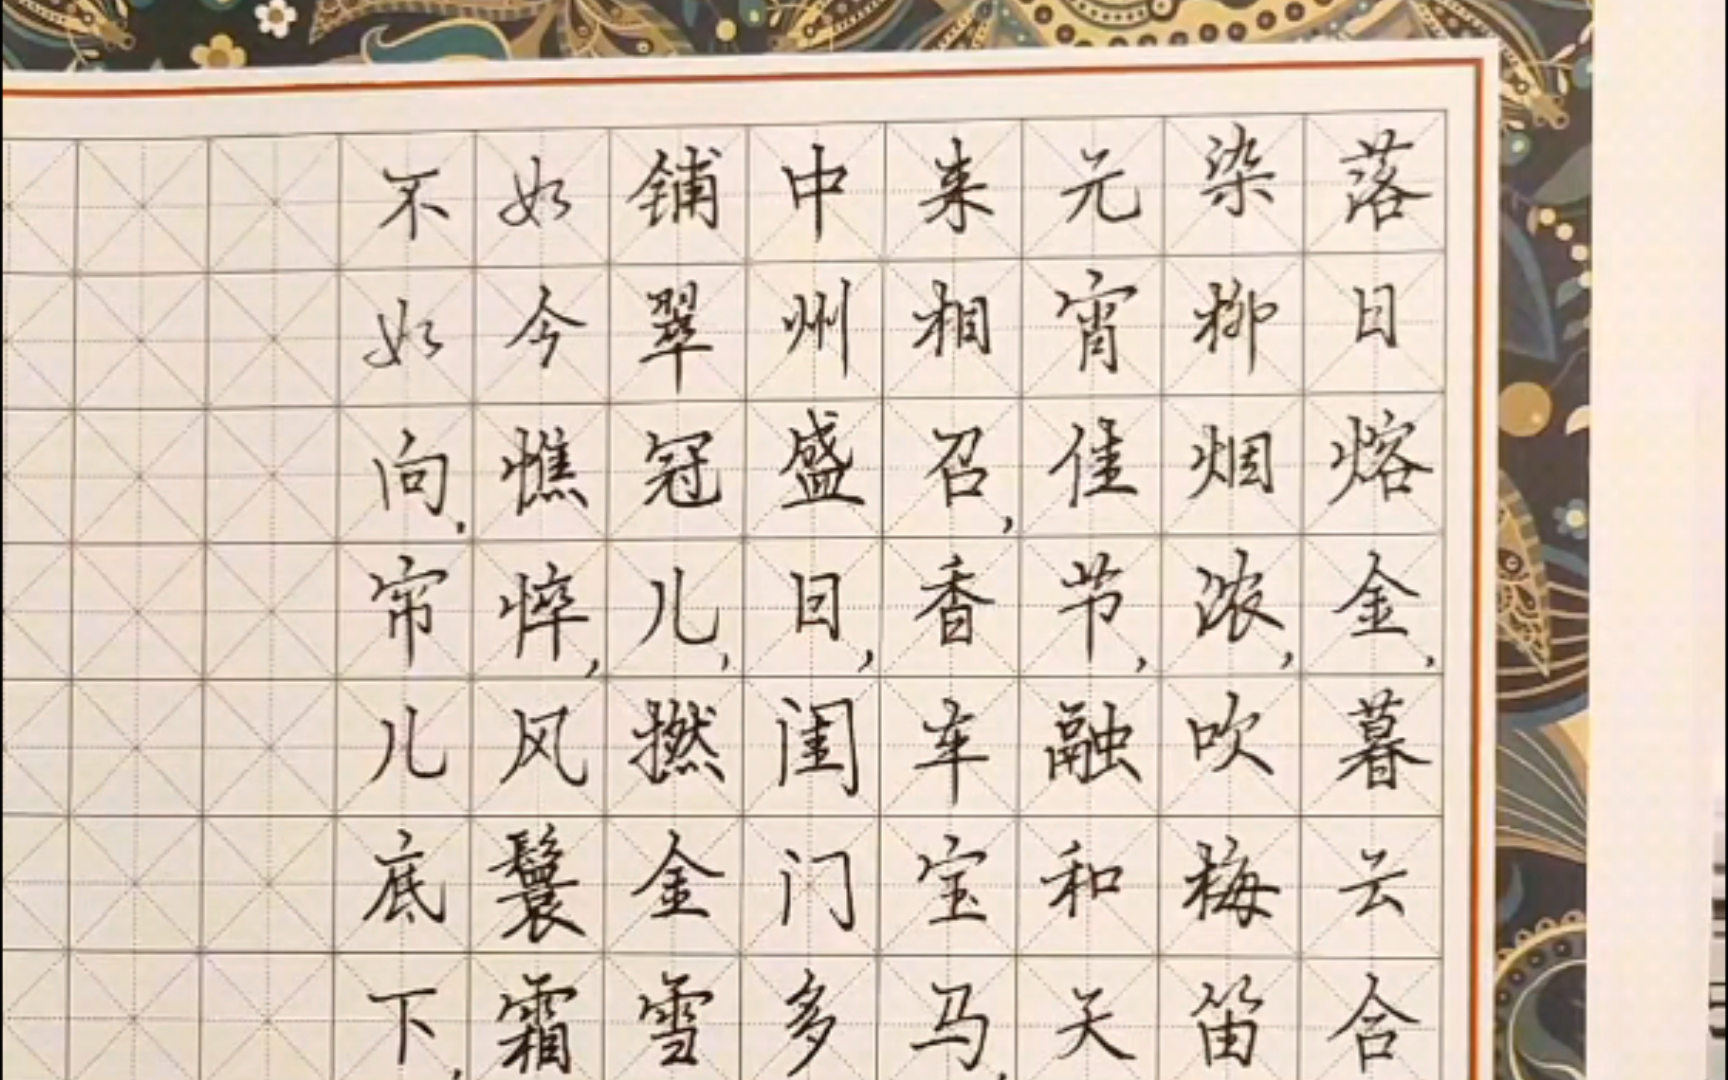 落日熔金,暮云合
染柳烟浓,吹梅笛
元宵佳节,融和天
来相召,香车宝马,
中州盛日,闺门多
铺翠冠儿,撚金雪
如今憔悴,风鬟霜
不如向.帘儿底下,